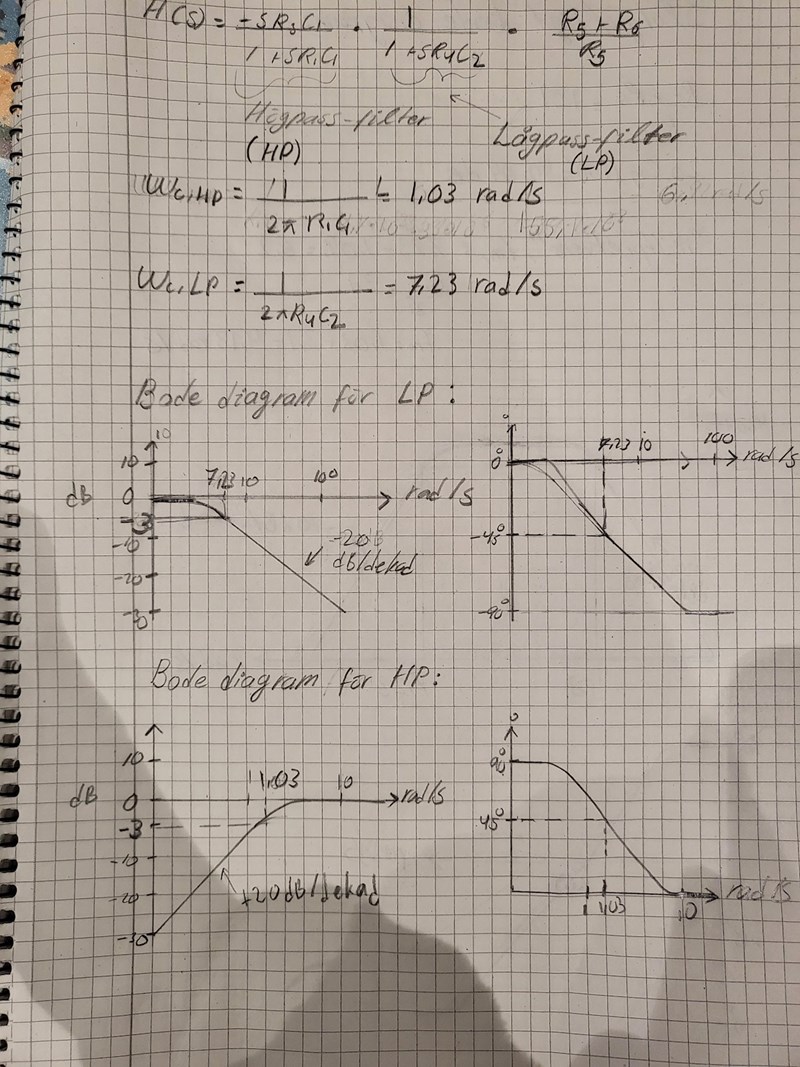 H(s) = -sR₃C₁ / (1 + sR₁C₁) · 1 / (1 + sR₄C₂) · (R₅ + R₆) / R₅
Högpass-filter
(HP)
Lågpass-filter
(LP)
ωc,HP = 1 / (2π R₁C₁) = 1,03 rad/s
ωc,LP = 1 / (2πR₄C₂) = 7,23 rad/s
Bode diagram för LP:
10
7,23 10 100 rad/s
dB 0
-3
-10
-20
-30
-20
dB/dekad
°
0° 7,23 10 100 rad/s
-45°
-90°
Bode diagram för HP:
10
1 1,03 10 rad/s
dB 0
-3
-10
-20
-30
+20dB/dekad
°
90°
45°
1 1,03 10 rad/s